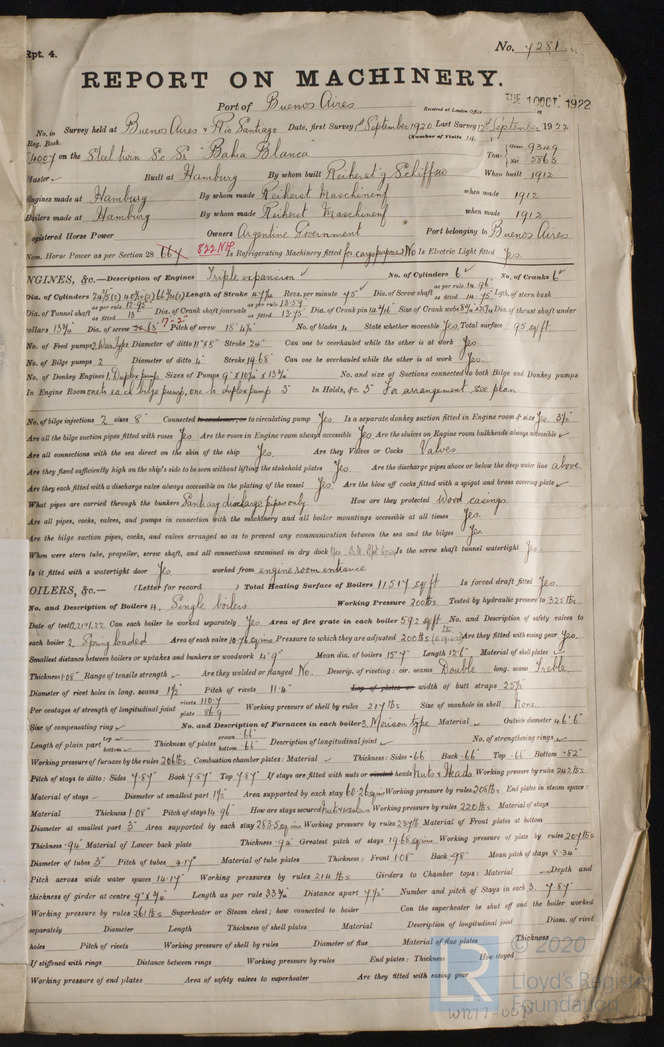 Rpt. 4.
No. 4281
REPORT ON MACHINERY.
Port of Buenos Aires
Received at London Office TUE. 10 OCT. 1922
No. in Survey held at Buenos Aires & Rio Santiago Date, first Survey 1st September 1920 Last Survey 12th September 1922
Reg. Book. (Number of Visits 14)
4007 on the Steel twin Sc Sr "Bahia Blanca" Tons Gross 9349 Net 5863
Master Built at Hamburg By whom built Reiherst'g Schiffsw When built 1912
Engines made at Hamburg By whom made Reiherst Maschinenf when made 1912
Boilers made at Hamburg By whom made Reiherst Maschinenf when made 1912
Registered Horse Power Owners Argentine Government Port belonging to Buenos Aires
Nom. Horse Power as per Section 28 822 NHP Is Refrigerating Machinery fitted for cargo purposes No Is Electric Light fitted Yes.
NGINES, &c.—Description of Engines Triple expansion No. of Cylinders 6 No. of Cranks 6
Dia. of Cylinders Length of Stroke Revs. per minute 75 Dia. of Screw shaft as per rule 14.96 as fitted 14.75 Lgth. of stern bush
Dia. of Tunnel shaft as per rule 12.95 as fitted 13" Dia. of Crank shaft journals as per rule 13.59 as fitted 13.75 Dia. of Crank pin Size of Crank webs Dia. of thrust shaft under
collars Dia. of screw Pitch of screw No. of blades 4 State whether moveable Yes Total surface 95 sq ft
No. of Feed pumps 2 Weir type Diameter of ditto 11" x 8" Stroke 24" Can one be overhauled while the other is at work Yes
No. of Bilge pumps 2 Diameter of ditto 4" Stroke 19.68" Can one be overhauled while the other is at work Yes.
No. of Donkey Engines 1. Duplex pump Sizes of Pumps No. and size of Suctions connected to both Bilge and Donkey pumps
In Engine Room one to each bilge pump, one to duplex pump 3" In Holds, &c. 3" For arrangement see plan
No. of bilge injections 2 sizes 8" Connected to condenser, or to circulating pump Yes. Is a separate donkey suction fitted in Engine room & size Yes. 3½"
Are all the bilge suction pipes fitted with roses Yes Are the roses in Engine room always accessible Yes Are the sluices on Engine room bulkheads always accessible
Are all connections with the sea direct on the skin of the ship Yes. Are they Valves or Cocks Valves
Are they fixed sufficiently high on the ship's side to be seen without lifting the stokehold plates Yes. Are the discharge pipes above or below the deep water line above
Are they each fitted with a discharge valve always accessible on the plating of the vessel Yes. Are the blow off cocks fitted with a spigot and brass covering plate
What pipes are carried through the bunkers Sanitary discharge pipes only. How are they protected Wood casings
Are all pipes, cocks, valves, and pumps in connection with the machinery and all boiler mountings accessible at all times Yes.
Are the bilge suction pipes, cocks, and valves arranged so as to prevent any communication between the sea and the bilges Yes
When were stern tube, propeller, screw shaft, and all connections examined in dry dock Is the screw shaft tunnel watertight Yes
Is it fitted with a watertight door Yes worked from engine room entrance
OILERS, &c.— (Letter for record ) Total Heating Surface of Boilers 11517 sq ft Is forced draft fitted Yes.
No. and Description of Boilers 4. Single boilers Working Pressure 200 lbs Tested by hydraulic pressure to 325 lbs
Date of test Can each boiler be worked separately Yes Area of fire grate in each boiler 59.2 sq ft No. and Description of safety valves to
each boiler 2 Spring loaded Area of each valve 10.76 sq ins Pressure to which they are adjusted 200 lbs Are they fitted with easing gear Yes.
Smallest distance between boilers or uptakes and bunkers or woodwork 4'9" Mean dia. of boilers 15'7" Length 12'6" Material of shell plates
Thickness 1.08" Range of tensile strength Are they welded or flanged No. Descrip. of riveting: cir. seams Double long. seams Treble
Diameter of rivet holes in long. seams 1½" Pitch of rivets 11.4" Lap of plates or width of butt straps 25½"
Per centages of strength of longitudinal joint rivets 110.7 plate 86.9 Working pressure of shell by rules 217 lbs Size of manhole in shell None
Size of compensating ring No. and Description of Furnaces in each boiler 3. Morison type Material Outside diameter 4'6"
Length of plain part top bottom Thickness of plates crown .66" bottom .66" Description of longitudinal joint No. of strengthening rings
Working pressure of furnace by the rules 206 lbs Combustion chamber plates: Material Thickness: Sides .66 Back .66" Top .66 Bottom .82"
Pitch of stays to ditto: Sides 7.87" Back 7.87" Top 7.87" If stays are fitted with nuts or riveted heads Nuts & Heads Working pressure by rules 242 lbs
Material of stays Diameter at smallest part 1½" Area supported by each stay 60.26 sq ins Working pressure by rules 208 lbs End plates in steam space:
Material Thickness 1.08" Pitch of stays 14.96" How are stays secured Working pressure by rules 220 lbs. Material of stays
Diameter at smallest part 3" Area supported by each stay 283.5 sq ins Working pressure by rules Material of Front plates at bottom
Thickness .94" Material of Lower back plate Thickness .94 Greatest pitch of stays Working pressure of plate by rules 207 lbs
Diameter of tubes 3" Pitch of tubes 4.17" Material of tube plates Thickness: Front 1.08" Back .98" Mean pitch of stays 8.34"
Pitch across wide water spaces 14.17" Working pressures by rules 214 lbs Girders to Chamber tops: Material Depth and
thickness of girder at centre Length as per rule 33¾" Distance apart 7½" Number and pitch of Stays in each 3. 7.87"
Working pressure by rules 261 lbs Superheater or Steam chest; how connected to boiler Can the superheater be shut off and the boiler worked
separately Diameter Length Thickness of shell plates Material Description of longitudinal joint Diam. of rivet
holes Pitch of rivets Working pressure of shell by rules Diameter of flue Material of flue plates Thickness
If stiffened with rings Distance between rings Working pressure by rules End plates: Thickness How stayed
Working pressure of end plates Area of safety valves to superheater Are they fitted with easing gear
© 2020
Lloyd's Register
Foundation
LR